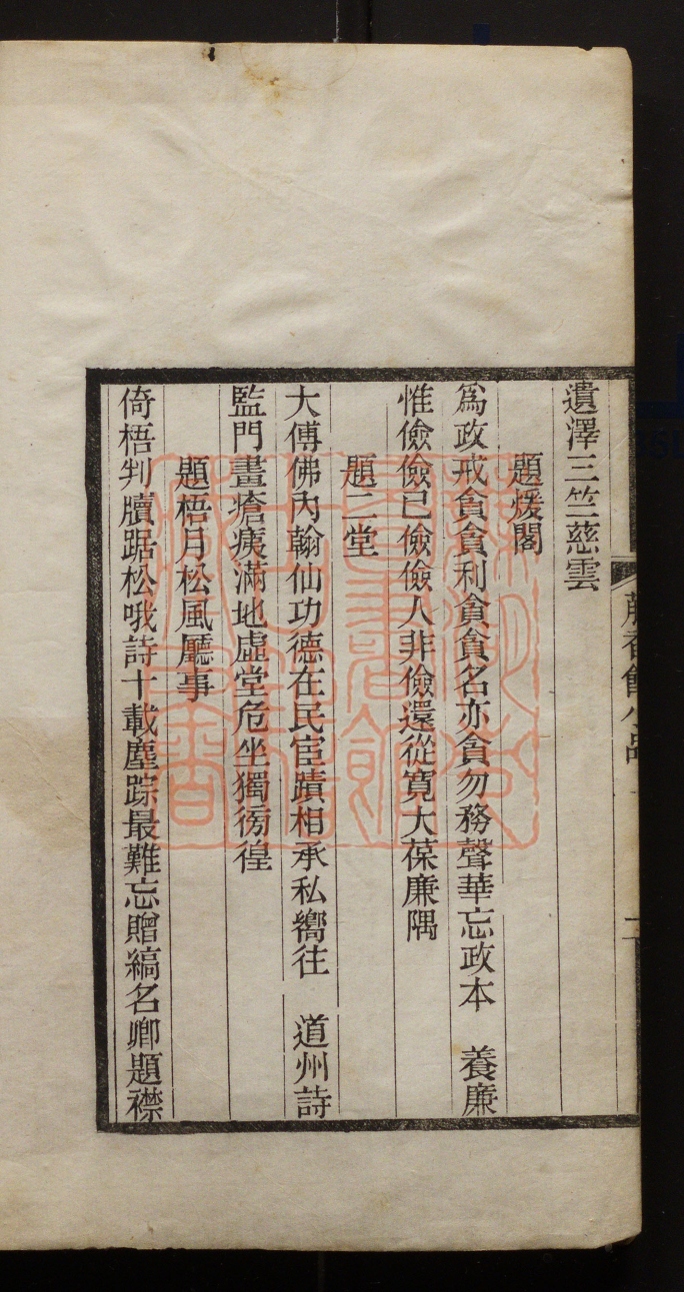 遺澤三竺慈雲
題煖閣
為政戒貪貪利貪貪名亦貪勿務聲華忘政本　養廉
惟儉儉己儉儉人非儉還從寬大葆廉隅
題二堂
大傅佛內翰仙功德在民宦蹟相承私嚮往　道州詩
監門畫瘡痍滿地虛堂危坐獨徬徨
題梧月松風廳事
倚梧判牘踞松哦詩十載塵踪最難忘贈縞名卿題襟